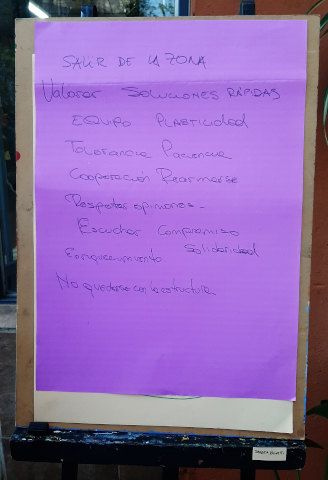 SALIR DE LA ZONA
Valorar SOLUCIONES RÁPIDAS
EQUIPO PLASTICIDAD
Tolerancia Paciencia
Cooperación Rearmarse
Respetar opiniones -
Escuchar Compromiso
Enriquecimiento Solidaridad
No quedarse con la estructura